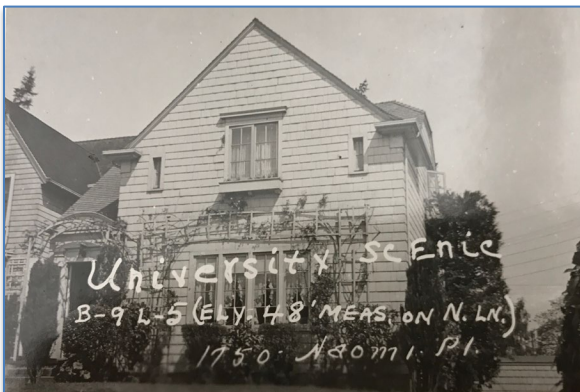 University Scenic
B-9 L-5 (ELY. 48' MEAS. ON N. LN.)
1750- Naomi. Pl.